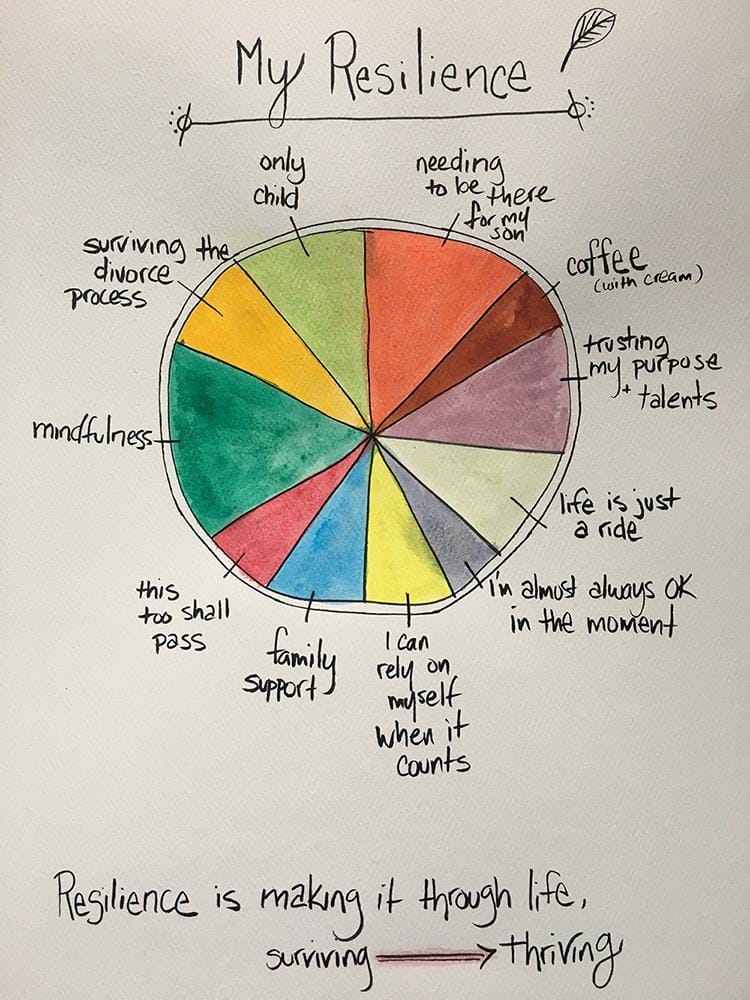 My Resilience
only
child
needing
to be there
for my
son
coffee
(with cream)
trusting
my purpose
+ talents
life is just
a ride
i'm almost always OK
in the moment
I can
rely on
myself
when it
counts
family
support
this
too shall
pass
mindfulness
surviving the
divorce
process
Resilience is making it through life,
surviving → thriving